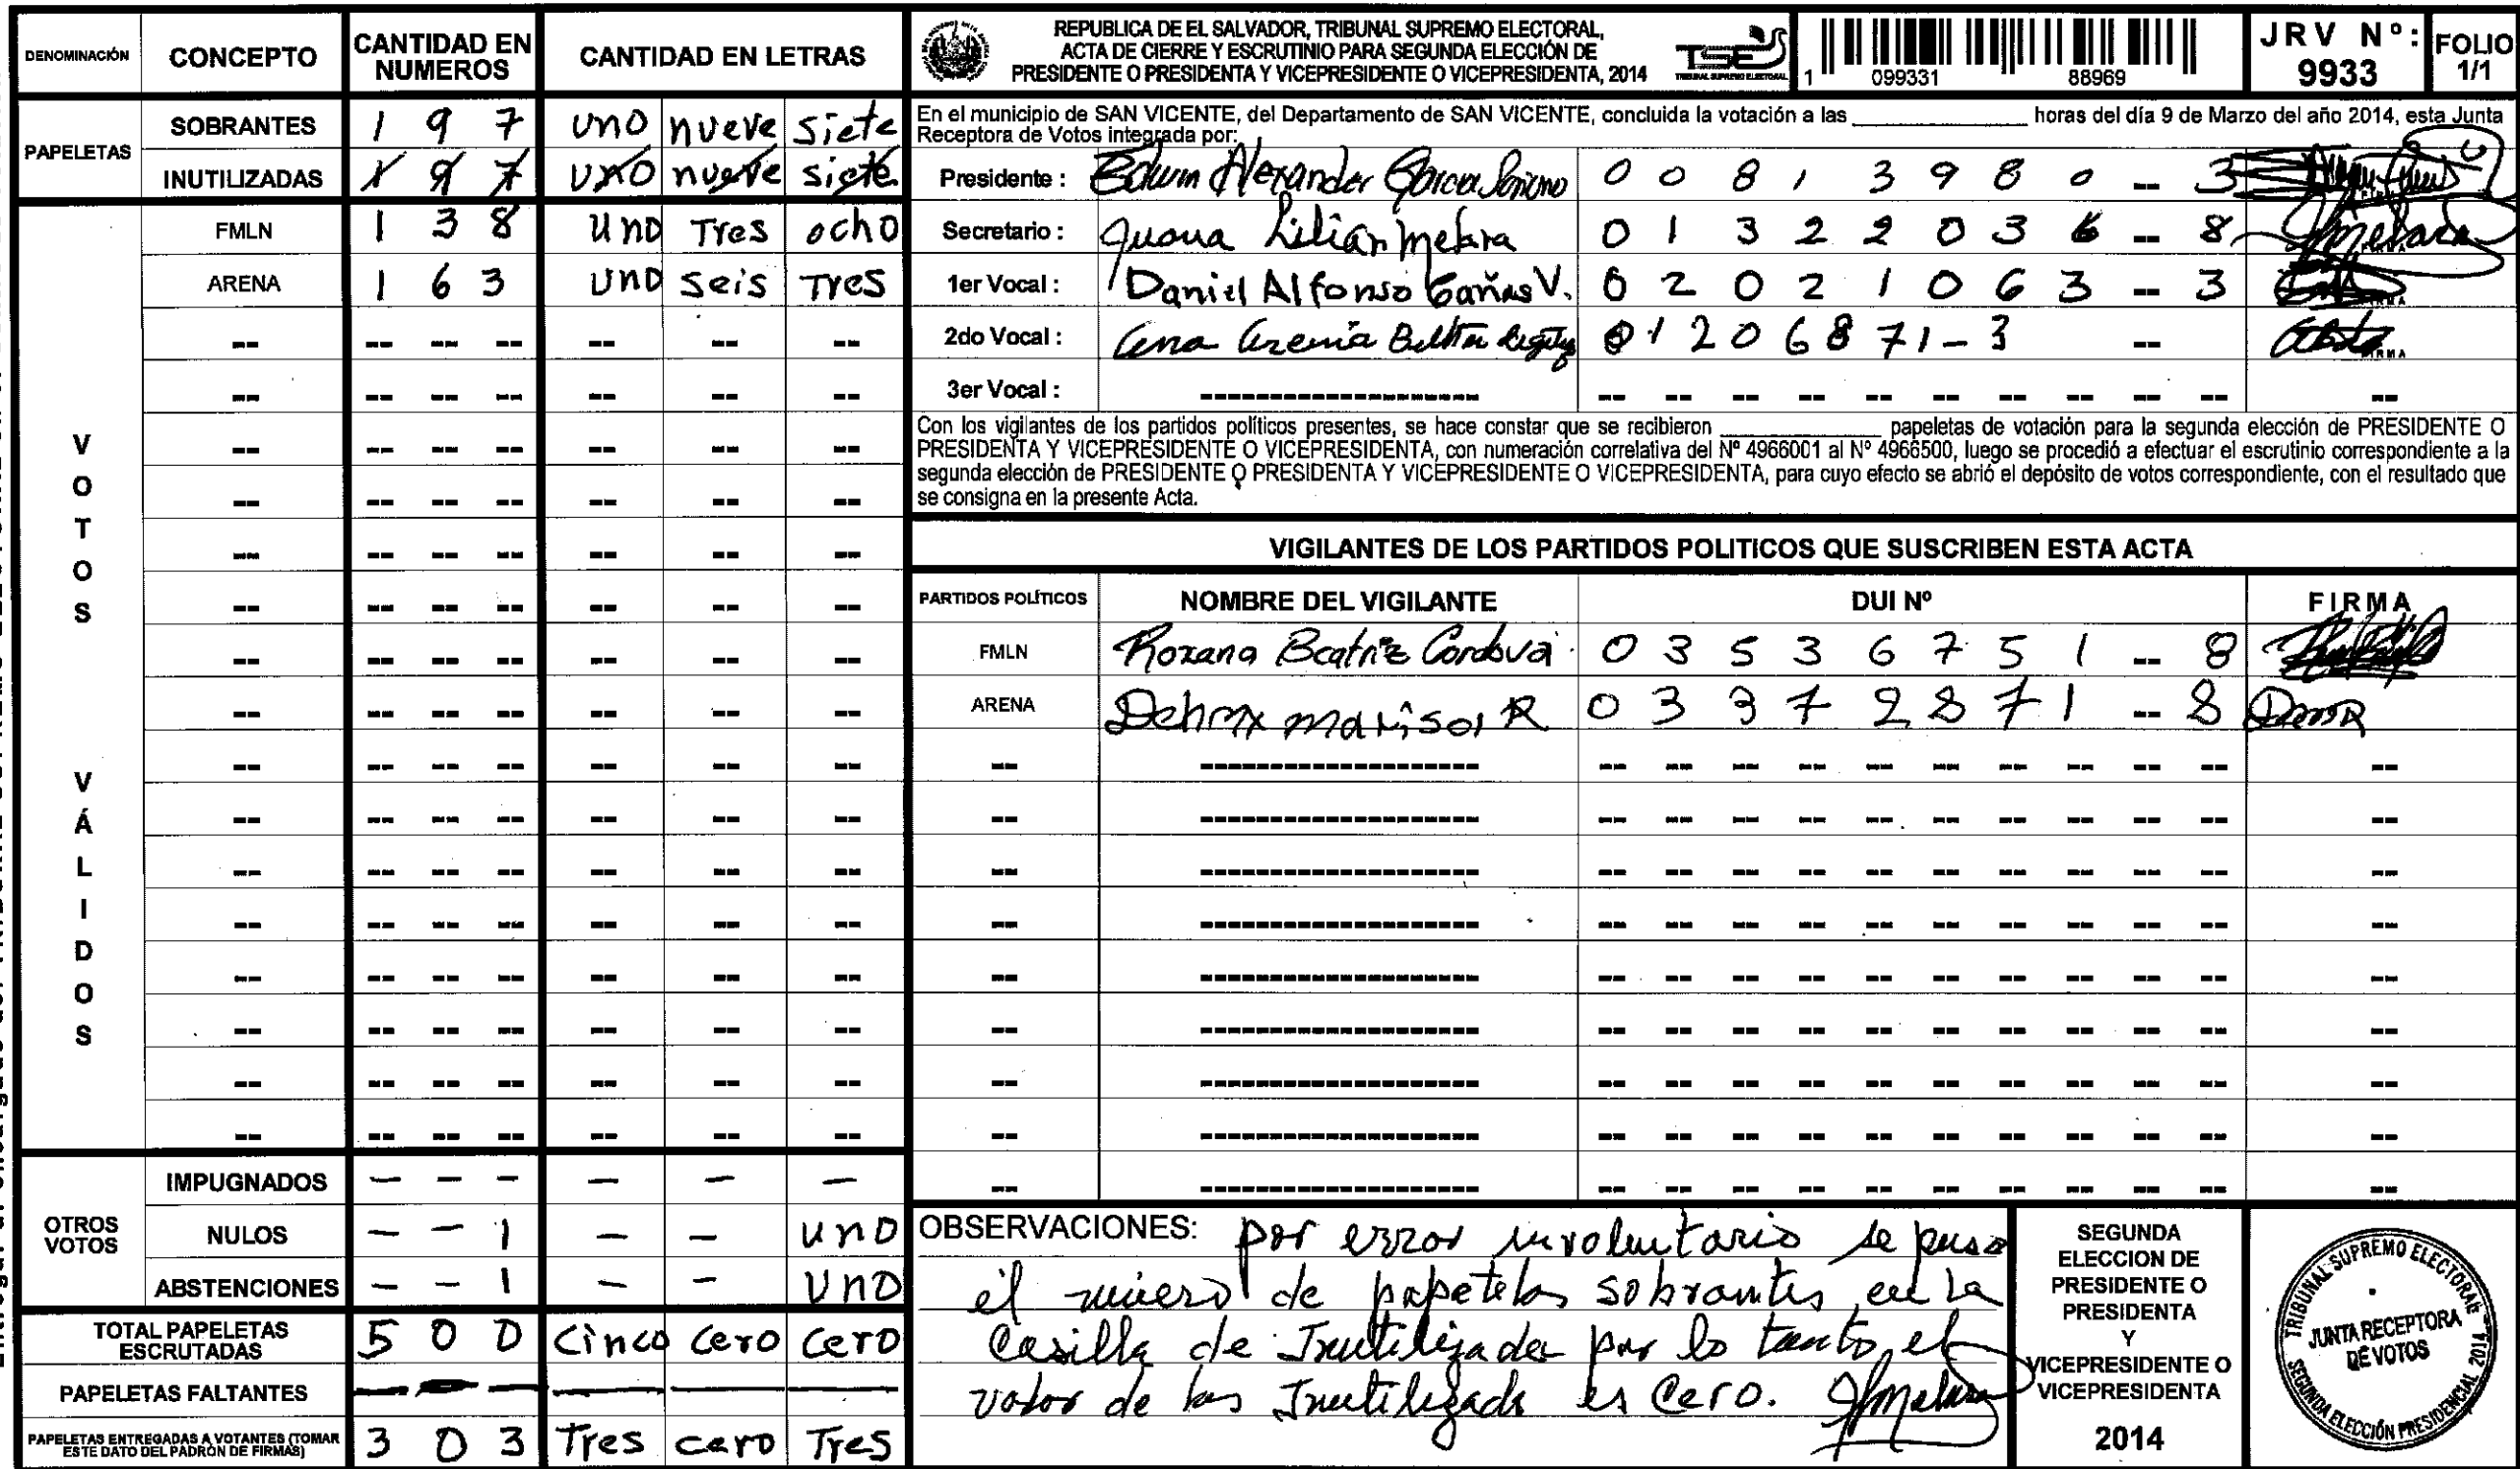 DENOMINACIÓN CONCEPTO CANTIDAD EN NUMEROS CANTIDAD EN LETRAS
PAPELETAS
SOBRANTES 1 9 7 uno nueve siete
INUTILIZADAS 1 9 7 uno nueve siete
VOTOS VÁLIDOS
FMLN 1 3 8 uno Tres ocho
ARENA 1 6 3 uno seis Tres
OTROS VOTOS
IMPUGNADOS — — — — — —
NULOS — — 1 — — uno
ABSTENCIONES — — 1 — — uno
TOTAL PAPELETAS ESCRUTADAS 5 0 0 Cinco cero cero
PAPELETAS FALTANTES — — — — — —
PAPELETAS ENTREGADAS A VOTANTES (TOMAR ESTE DATO DEL PADRÓN DE FIRMAS) 3 0 3 Tres cero Tres
REPUBLICA DE EL SALVADOR, TRIBUNAL SUPREMO ELECTORAL,
ACTA DE CIERRE Y ESCRUTINIO PARA SEGUNDA ELECCIÓN DE
PRESIDENTE O PRESIDENTA Y VICEPRESIDENTE O VICEPRESIDENTA, 2014
TSE
TRIBUNAL SUPREMO ELECTORAL
1 099331 88969
JRV Nº: 9933
FOLIO 1/1
En el municipio de SAN VICENTE, del Departamento de SAN VICENTE, concluida la votación a las ______ horas del día 9 de Marzo del año 2014, esta Junta
Receptora de Votos integrada por:
Presidente : Edwin Alexander García 0 0 8 1 3 9 8 0 -- 3
Secretario : Juana Lilian 0 1 3 2 2 0 3 6 -- 8
1er Vocal : Daniel Alfonso Cañas V. 0 2 0 2 1 0 6 3 -- 3
2do Vocal : Ana Beltrán 0 1 2 0 6 8 7 1 - 3 -- FIRMA
3er Vocal :
Con los vigilantes de los partidos políticos presentes, se hace constar que se recibieron ______ papeletas de votación para la segunda elección de PRESIDENTE O
PRESIDENTA Y VICEPRESIDENTE O VICEPRESIDENTA, con numeración correlativa del Nº 4966001 al Nº 4966500, luego se procedió a efectuar el escrutinio correspondiente a la
segunda elección de PRESIDENTE O PRESIDENTA Y VICEPRESIDENTE O VICEPRESIDENTA, para cuyo efecto se abrió el depósito de votos correspondiente, con el resultado que
se consigna en la presente Acta.
VIGILANTES DE LOS PARTIDOS POLITICOS QUE SUSCRIBEN ESTA ACTA
PARTIDOS POLÍTICOS NOMBRE DEL VIGILANTE DUI Nº FIRMA
FMLN Roxana Beatriz Cordova 0 3 5 3 6 7 5 1 -- 8
ARENA marisol R 0 3 3 7 2 8 7 1 -- 8
OBSERVACIONES: por error involuntario se puso
el número de papeletas sobrantes en la
Casilla de Inutilizadas por lo tanto el
valor de las Inutilizada es cero.
SEGUNDA
ELECCION DE
PRESIDENTE O
PRESIDENTA
Y
VICEPRESIDENTE O
VICEPRESIDENTA
2014
TRIBUNAL SUPREMO ELECTORAL
JUNTA RECEPTORA
DE VOTOS
SEGUNDA ELECCIÓN PRESIDENCIAL 2014